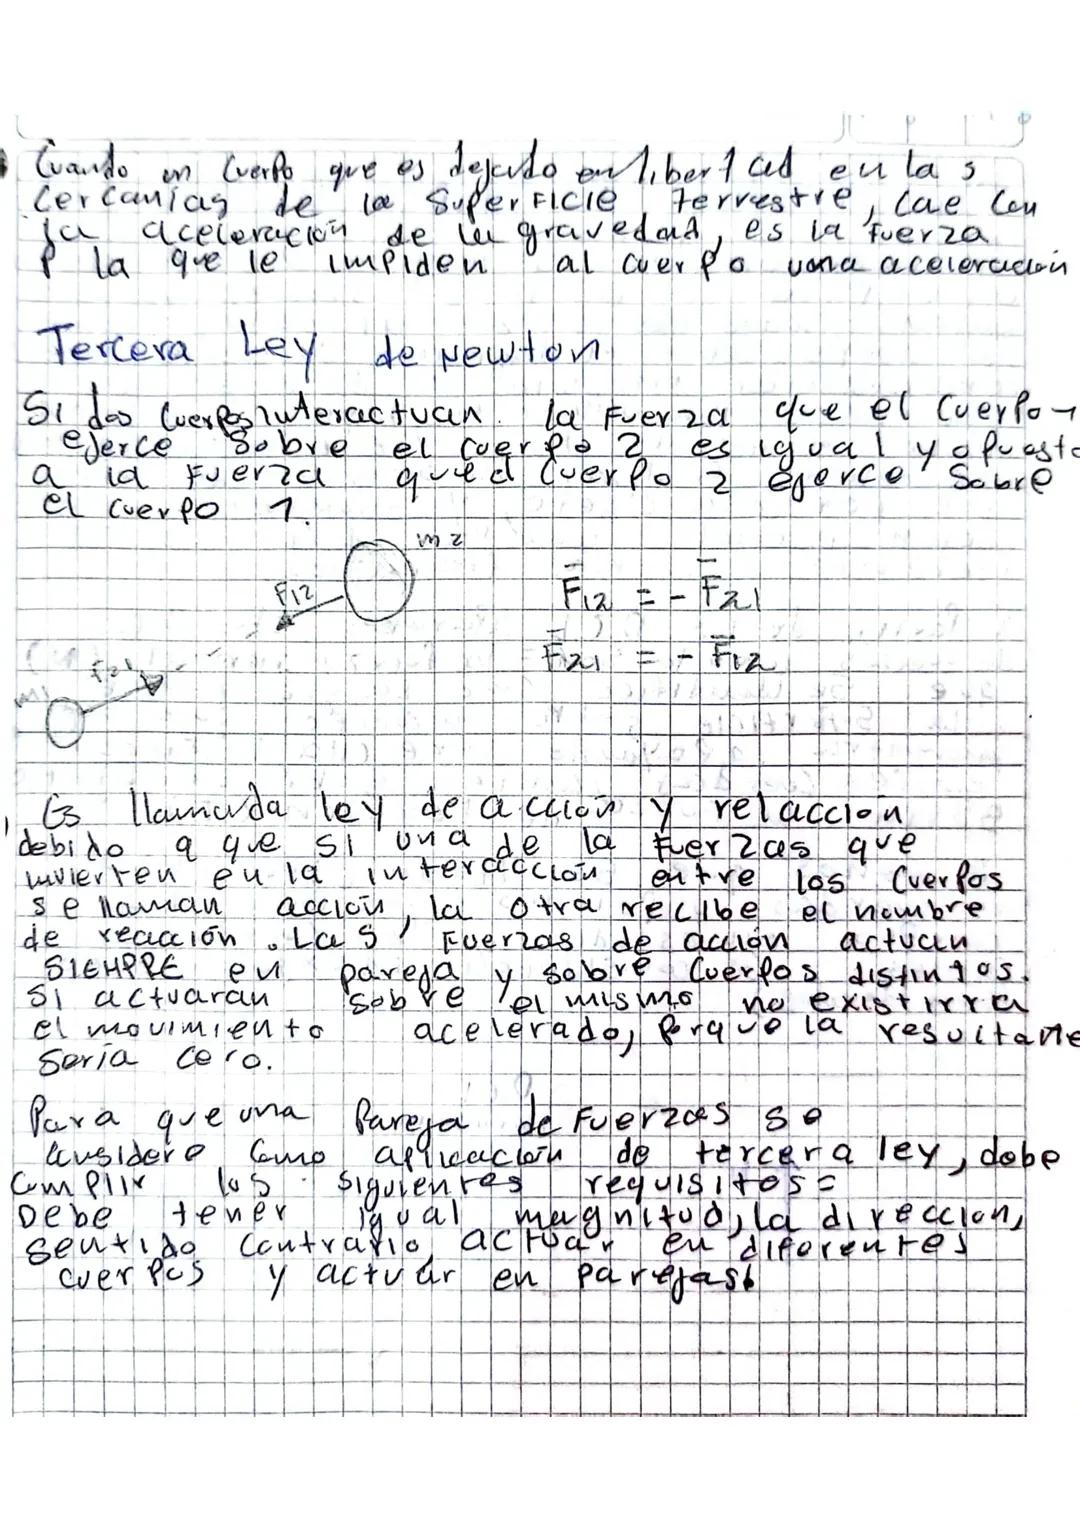 Cuando un cuerpo que es dejado en libertad en las
cercanías de la superficie terrestre, cae con
la aceleración de la gravedad, es la fuerza
P la que le impiden al cuerpo una aceleración
Tercera Ley de Newton
Si dos cuerpos interactuan. la fuerza que el cuerpo 1
ejerce sobre el cuerpo 2 es igual y opuesta
a la fuerza que el cuerpo 2 ejerce sobre
el cuerpo 1.
m2
F12
F̄12 = - F̄21
F̄21 = - F̄12
F21
m1
Es llamada ley de acción y relacción
debido a que si una de la fuerzas que
invierten en la interacción entre los cuerpos
se llaman acción, la otra recibe el nombre
de reacción. Las fuerzas de acción actuan
SIEMPRE en pareja y sobre cuerpos distintos.
Si actuaran sobre el mismo no existirra
el movimiento acelerado, porque la resultante
sería cero.
Para que una pareja de fuerzas se
considere como aplicación de tercera ley, debe
cumplir los siguientes requisitos:
Debe tener igual magnitud, la dirección,
sentido contrario, actuar en diferentes
cuerpos y actuar en parejas.